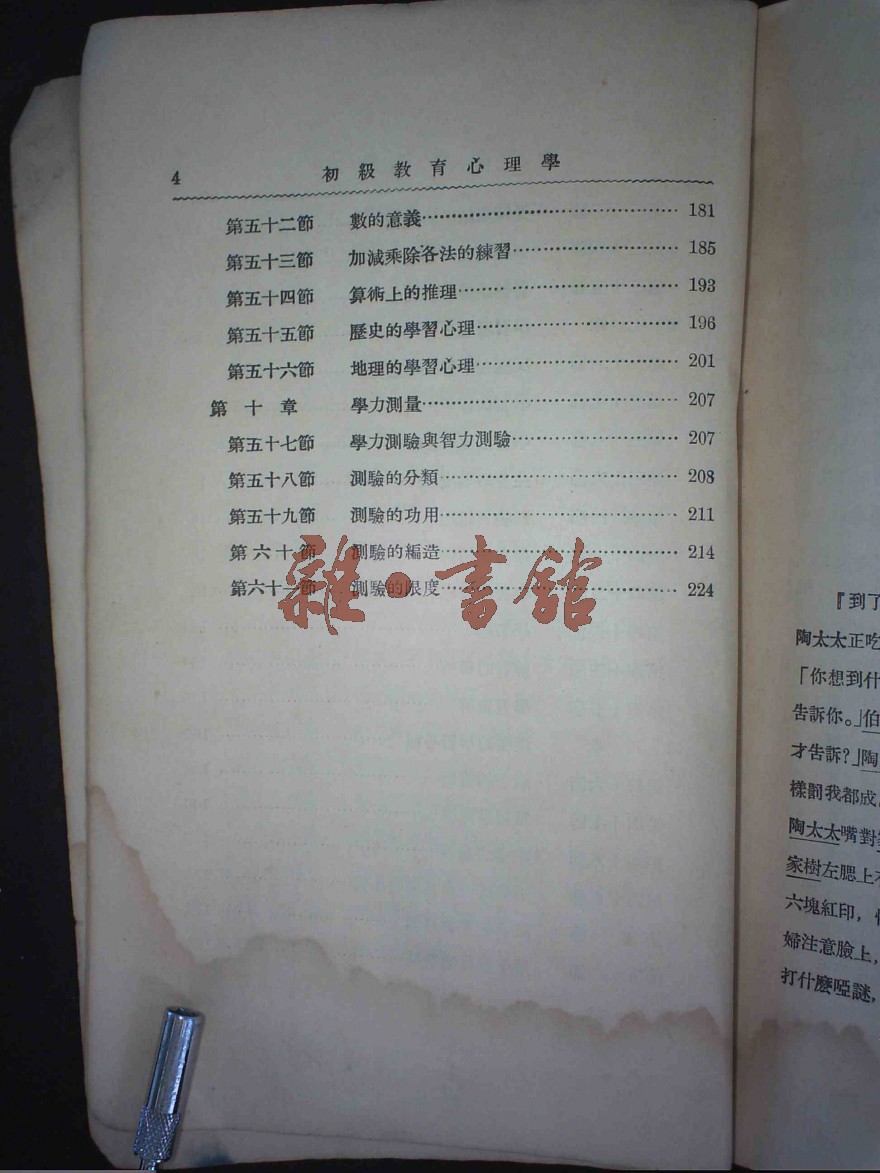 4 初級教育心理學
第五十二節 數的意義 181
第五十三節 加減乘除各法的練習 185
第五十四節 算術上的推理 193
第五十五節 歷史的學習心理 196
第五十六節 地理的學習心理 201
第十章 學力測量 207
第五十七節 學力測驗與智力測驗 207
第五十八節 測驗的分類 208
第五十九節 測驗的功用 211
第六十節 測驗的編造 214
第六十一節 測驗的限度 224
雜·書舘
『到了
陶太太正吃
「你想到什
告訴你。」伯
才告訴?」陶
樣罰我都成。
陶太太嘴對
家樹左腮上
六塊紅印,
婦注意臉上,
打什麼啞謎,